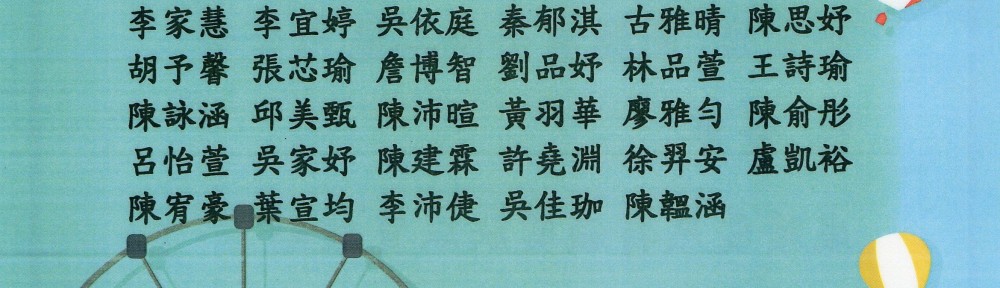 李家慧 李宜婷 吳依庭 秦郁淇 古雅晴 陳思妤
胡予馨 張芯瑜 詹博智 劉品妤 林品萱 王詩瑜
陳詠涵 邱美甄 陳沛暄 黃羽華 廖雅勻 陳俞彤
呂怡萱 吳家妤 陳建霖 許堯淵 徐羿安 盧凱裕
陳宥豪 葉宣均 李沛倢 吳佳珈 陳韞涵